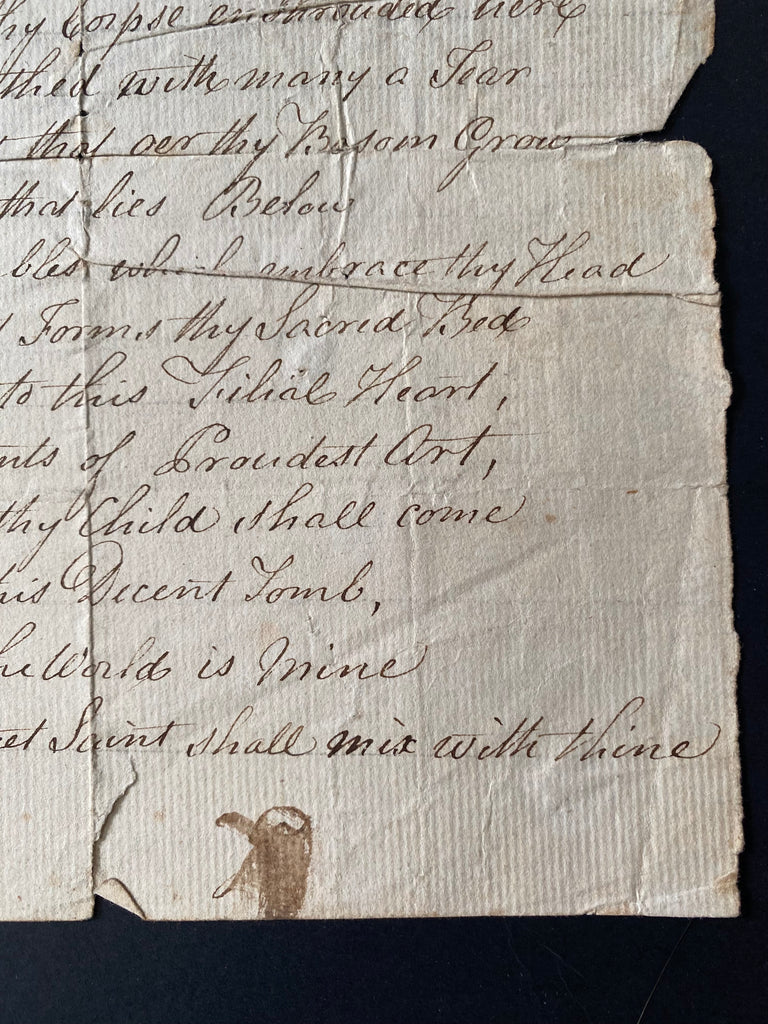 thy Corpse enshrouded here
thed with many a Tear
that oer thy Bosom Grow
that lies Below
bles which embrace thy Head
Forms thy Sacred Bed
to this Filial Heart,
nts of Proudest Art,
thy Child shall come
his Decent Tomb,
he World is Mine
et Saint shall mix with thine